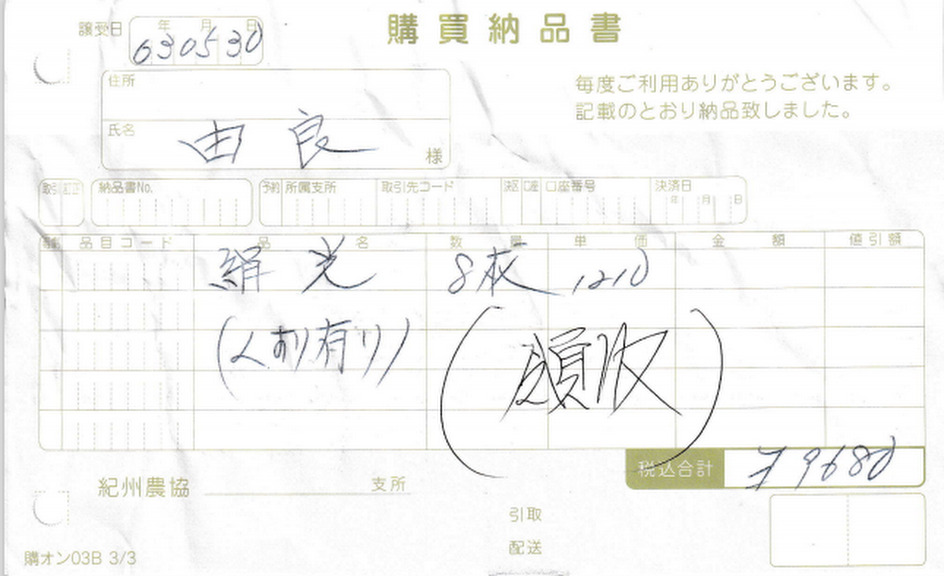 購買納品書
譲受日 年 月 日
630530
毎度ご利用ありがとうございます。
記載のとおり納品致しました。
住所
氏名 由良 様
取引 訂正 納品書No. 予約 所属支所 取引先コード 決区 口座 口座番号 決済日 年 月 日
品目コード 品名 数量 単価 金額 値引額
絹光 8枚 1210
(くすり有り)
(領収)
税込合計 ¥9680
紀州農協 支所
引取
配送
購オン03B 3/3